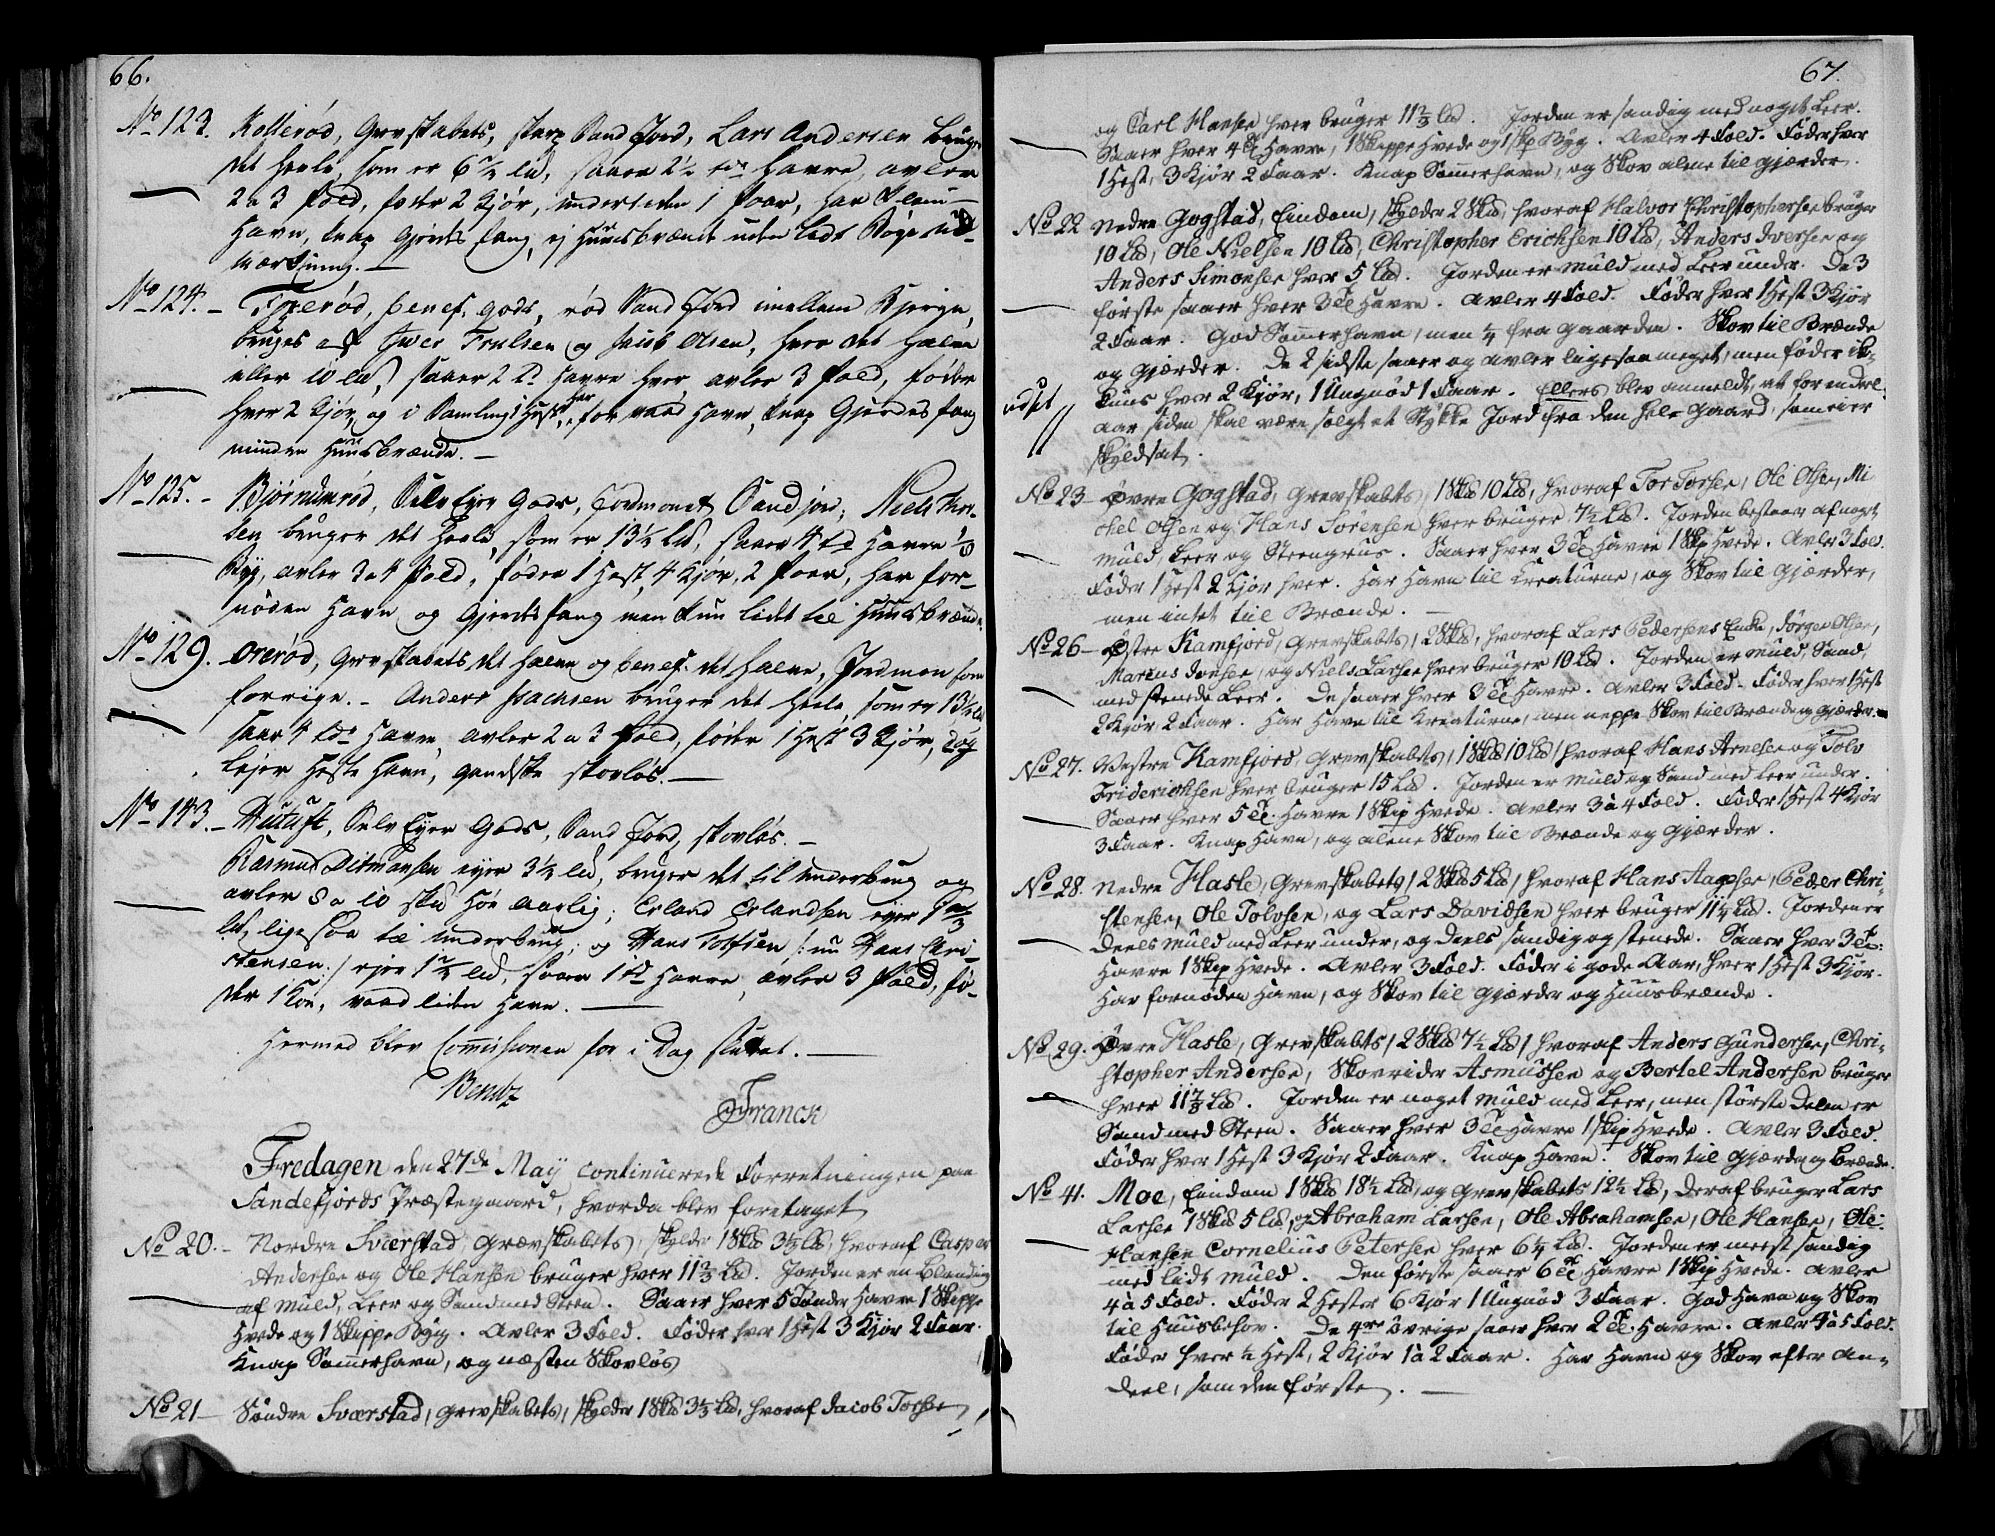 66.
No 123. Kollerød, Grevskabets, skarp Sand Jord, Lars Andersen bruger
det heele, som er 6 1/2 lld, saaer 2 1/2 tdr Havre, avler
2 a 3 fold, foder 2 Kjør, undertiden 1 faar, har
Havn, knap Gjerdsfang, ej Huusbrænde uden lidt Bøge ud-
No 124. - benef. gods, rød Sand Jord imellem Bjerge,
bruges af Iver Trulsen og Jacob Olsen, hver det halve
eller 10 lld, saaer 2 td Havre hver, avler 3 fold, føder
hver 2 Kjør, og i Samling 1 Hest, har fornøden Havn, knap Gjerdesfang
mindre Huusbrænde. -
No 125. - Bjørnumrød, SelvEyer Gods, Jordmonet Sandjord, Niels
sen bruger det heele, som er 13 1/2 lld, saaer 4 td Havre 1/8
Byg, avler 3 a 4 fold, føder 1 Hest, 4 Kjør, 2 faar, har for-
nøden Havn og Gjerdsfang men kun lidt til Huusbrænde.
No 129. Orerød, Grevskabets det halve og benef. det halve, Jordmon som
forrige. - Anders Isachsen bruger det heele, som er 13 1/2 lld
saaer 4 tdr Havre, avler 2 a 3 fold, føder 1 Hest 3 Kjør, dog
lejer Heste Havn, gandske skovløs. -
No 143. - SelvEyer Gods, Sand Jord, skovløs. -
Rasmus Ditmansen eyer 3 1/2 lld, bruger det til underbrug og
avler 8 a 10 skd Høe aarlig; Erland Erlandsen eyer
lld, ligesaa til underbrug; og Hans Tolfsen /: nu Hans Chri-
stensen :/ ejer lld, saaer 1 td Havre, avler 3 fold, fø-
der 1 Koe, liden Havn. -
Hermed blev Commissionen for i Dag sluttet. -
Bentz
Franck
Fredagen den 27de May continuerede Forretningen paa
Sandefjords Præstegaard, hvorda blev foretaget
No 20. - Nordre Sværstad, Grævskabets, skylder 1 Skd 3 1/3 Lld, hvoraf Casper
Andersen og Ole Hansen bruger hver 11 2/3 Lld. Jorden er en Blanding
af Muld, Leer og Sand med Steen. Saaer hver 5 Tønder Havre 1 Skieppe
Hvede og 1 Skieppe Byg. Avler 3 Fold. Føder hver 1 Hest 3 Kjør 2 Faar.
Knap Sommerhavn, og næsten Skovløs
No 21 - Søndre Sværstad, Grevskabets, skylder 1 Skd 3 1/3 Lld, hvoraf Jacob Torsen
67.
og Carl Hansen hver bruger 11 2/3 Lld. Jorden er sandig med noget Leer.
Saaer hver 4 Td Havre, 1 Skieppe Hvede og 1 Skp Byg. Avler 4 Fold. Føder hver
1 Hest, 3 Kjør 2 Faar. Knap Sommerhavn, og Skov alene til Gjærder.
No 22 Nedre Gogstad, Eindom, skylder 2 Skd, hvoraf Halvor Christophersen bruger
10 Lld, Ole Nielsen 10 Lld, Christopher Erichsen 10 Lld, Anders Iversen og
Anders Simonsen hver 5 Lld. Jorden er Muld med Leer under. De 3
første saaer hver 3 Td Havre. Avler 4 Fold. Føder hver 1 Hest 3 Kjør
2 Faar. God Sommerhavn, men 1/4 fra Gaarden. Skov til Brænde
og Gjærder. De 2 sidste saaer og avler ligesaa meget, men føder ik-
kuns hver 2 Kjør, 1 Ungnød 1 Faar. Ellers blev anmeldt, at for endeel
udsat
aar siden skal være solgt et Stykke Jord fra den hele Gaard, som ei er
skyldsat.
No 23 Øvre Gogstad, Grevskabets, 1 Skd 10 Lld, hvoraf Tor Torsen, Ole Olsen, Mi
chel Olsen og Hans Sørensen hver bruger 7 1/2 Lld. Jorden bestaar af noget
muld, Leer og Steengrus. Saaer hver 3 Td Havre 1 Skp Hvede. Avler 3 Fold.
Føder 1 Hest 2 Kjør hver. Har Havn til Kreaturene, og Skov til Gjærder,
men intet til Brænde. -
No 26 - Østre Kamfjord, Grevskabets, 2 Skd, hvoraf Lars Pedersens Enke, Jørgen Olsen,
Marcus Jonsen, og Niels Larsen hver bruger 10 Lld. Jorden er Muld, Sand,
med stenede Leer. De saaer hver 3 Td Havre. Avler 3 Fold. Føder hver 1 Hest
2 Kjør 2 Faar. Har Havn til Kreaturene, men neppe Skov til Brænde og Gjærder.
No 27. Vestre Kamfjord, Grevskabets, 1 Skd 10 Lld, hvoraf Hans Arnesen og Tolv
Friderichsen hver bruger 15 Lld. Jorden er Muld og Sand med Leer under.
Saaer hver 5 Td Havre 1 Skip Hvede. Avler 3 à 4 Fold. Føder 1 Hest 4 Kjør
3 Faar. Knap Havn, og alene Skov til Brænde og Gjærder.
No 28. Nedre Hasle, Grevskabets, 2 Skd 5 Lld, hvoraf Hans Aagesen, Peder Chri-
stensen, Ole Tolvsen, og Lars Davidsen hver bruger 11 1/4 Lld. Jorden er
deels Muld med Leer under, og deels sandig og stenede. Saaer hver 3 Td
Havre 1 Skip Hvede. Avler 3 Fold. Føder i gode Aar, hver 1 Hest 3 Kjør.
Har fornøden Havn, og Skov til Gjærder og Huusbrænde.
No 29. Øvre Hasle, Grevskabets, 2 Skd 7 1/2 Lld, hvoraf Anders Gundersen, Chri-
stopher Andersen, Skovrider Asmussen og Bertel Andersen bruger
hver 11 7/8 Lld. Jorden er noget Muld med Leer, men største Delen er
Sand med Steen. Saaer hver 3 Td Havre 1 Skip Hvede. Avler 3 Fold.
Føder hver 1 Hest 3 Kjør 2 Faar. Knap Havn. Skov til Gjærder og Brænde.
No 41. Moe, Eindom 1 Skd 18 1/2 Lld, og Grevskabets 12 1/2 Lld, deraf bruger Lars
Larsen 1 Skd 5 Lld, og Abraham Larsen, Ole Abrahamsen, Ole Hansen, Ole
Hansen Cornelius Petersen hver 6 1/4 Lld. Jorden er meest sandig
med lidt Muld. Den første saaer 6 Td Havre 1 Skip Hvede. Avler
4 à 5 Fold. Føder 2 Hester 6 Kjør 1 Ungnød 3 Faar. God Havn og Skov
til Huusbehov. De 4re øvrige saaer hver 2 Td Havre. Avler 4 à 5 Fold.
Føder hver 1/2 Hest, 2 Kjør 1 à 2 Faar. Har Havn og Skov efter An-
deel, som den første. -